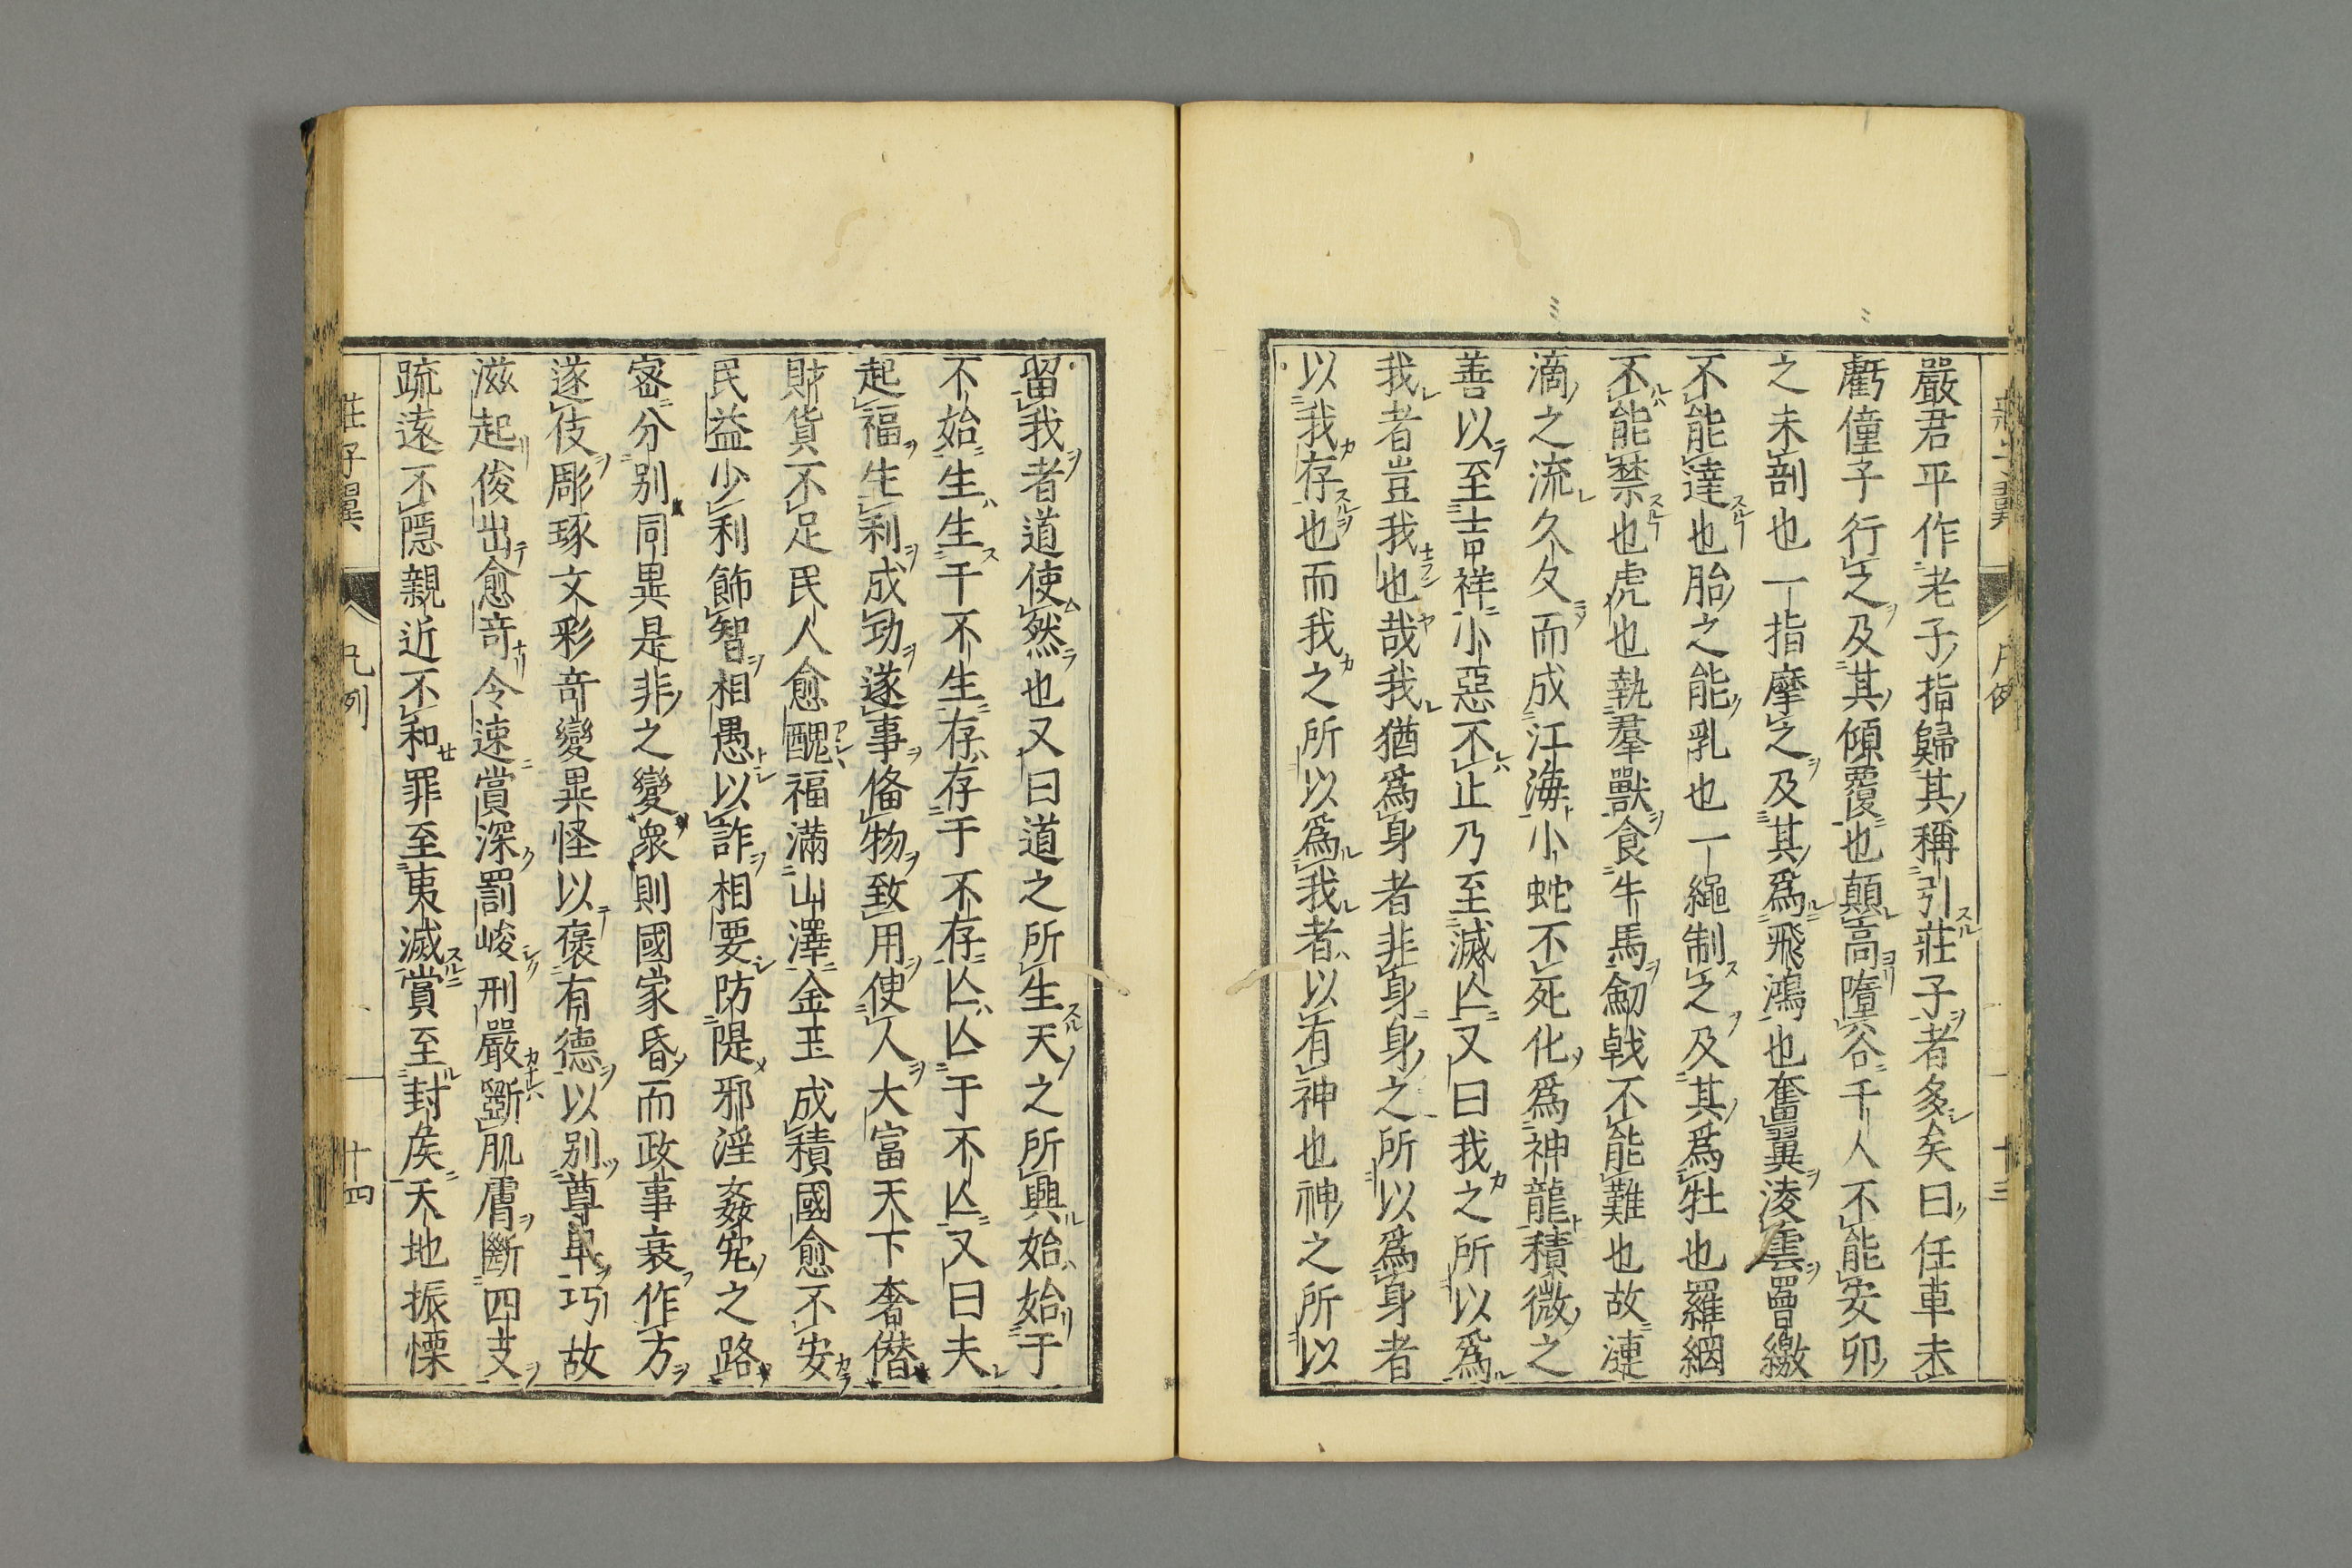 嚴君平作老子指歸其稱引莊子者多矣曰任車未
虧僮子行之及其傾覆也顛高墮谷千人不能安卵
之未剖也一指摩之及其爲飛鴻也奮翼淩雲罾繳
不能達也胎之能乳也一繩制之及其爲牡也羅網
不能禁也虎也執羣獸食牛馬劒戟不能難也故漣
滴之流久久而成江海小蛇不死化爲神龍積微之
善以至吉祥小惡不止乃至滅亾又曰我之所以爲
我者豈我也哉我猶爲身者非身身之所以爲身者
以我存也而我之所以爲我者以有神也神之所以
留我者道使然也又曰道之所生天之所興始始于
不始生生于不生存存于不存亾亾于不亾又曰夫
起福生利成功遂事俻物致用使人大富天下奢僭
財貨不足民人愈醜福滿山澤金玉成積國愈不安
民益少利飾智相愚以詐相要防隄邪淫姦宄之路
密分别同異是非之變衆則國家昏而政事衰作方
遂伎彫琢文彩奇變異怪以褒有德以别尊卑巧故
滋起俊出愈奇令速賞深罰峻刑嚴斲肌膚斷四支
疏遠不隱親近不和罪至夷滅賞至封矦天地振慄
莊子翼
凡例
十四
十三